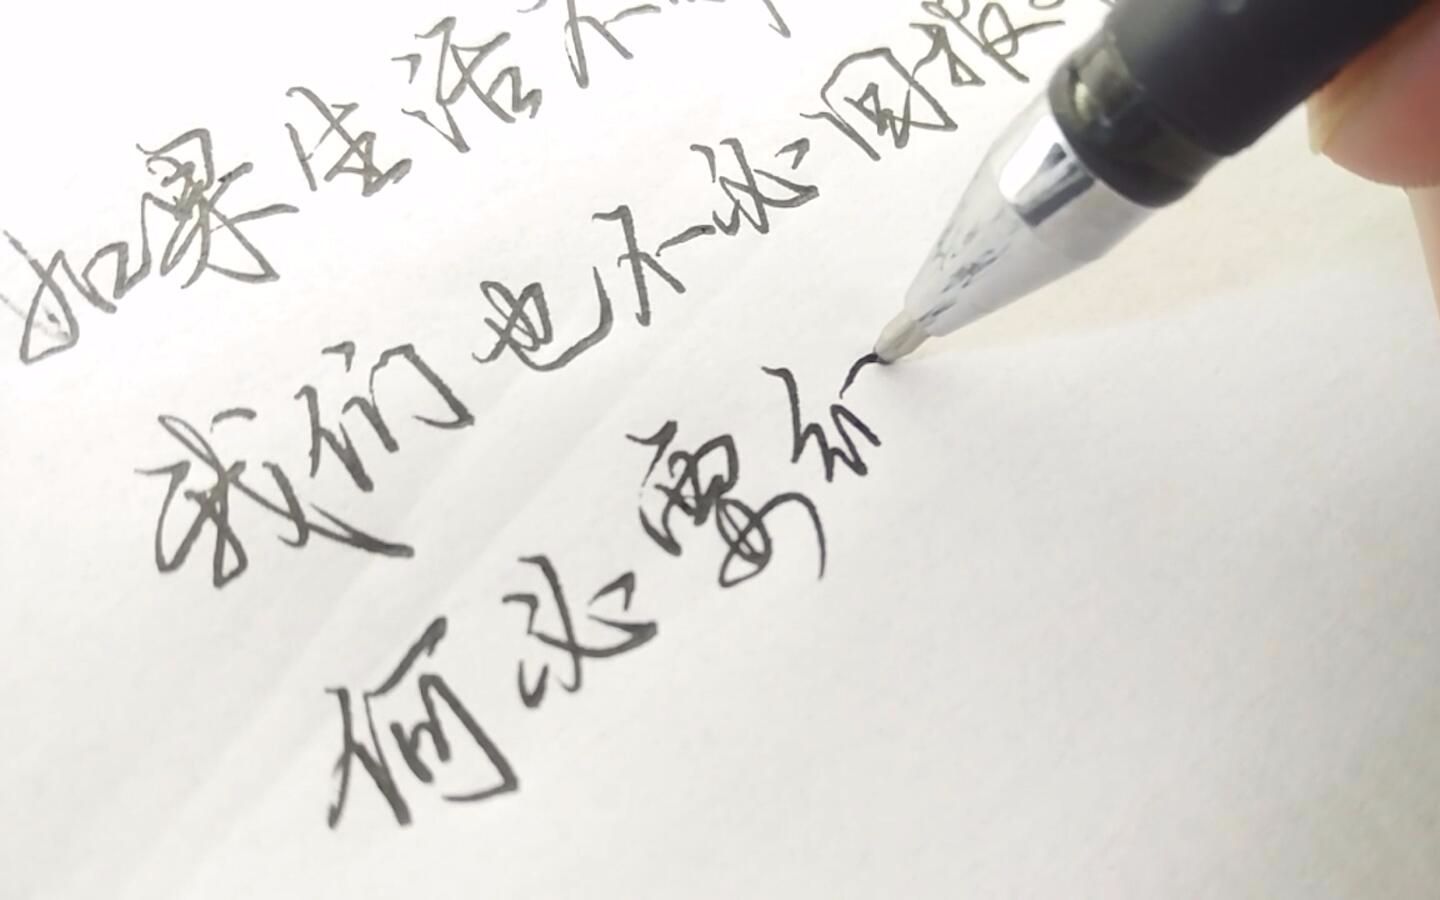 如果生活不
我们也不必用
何必要